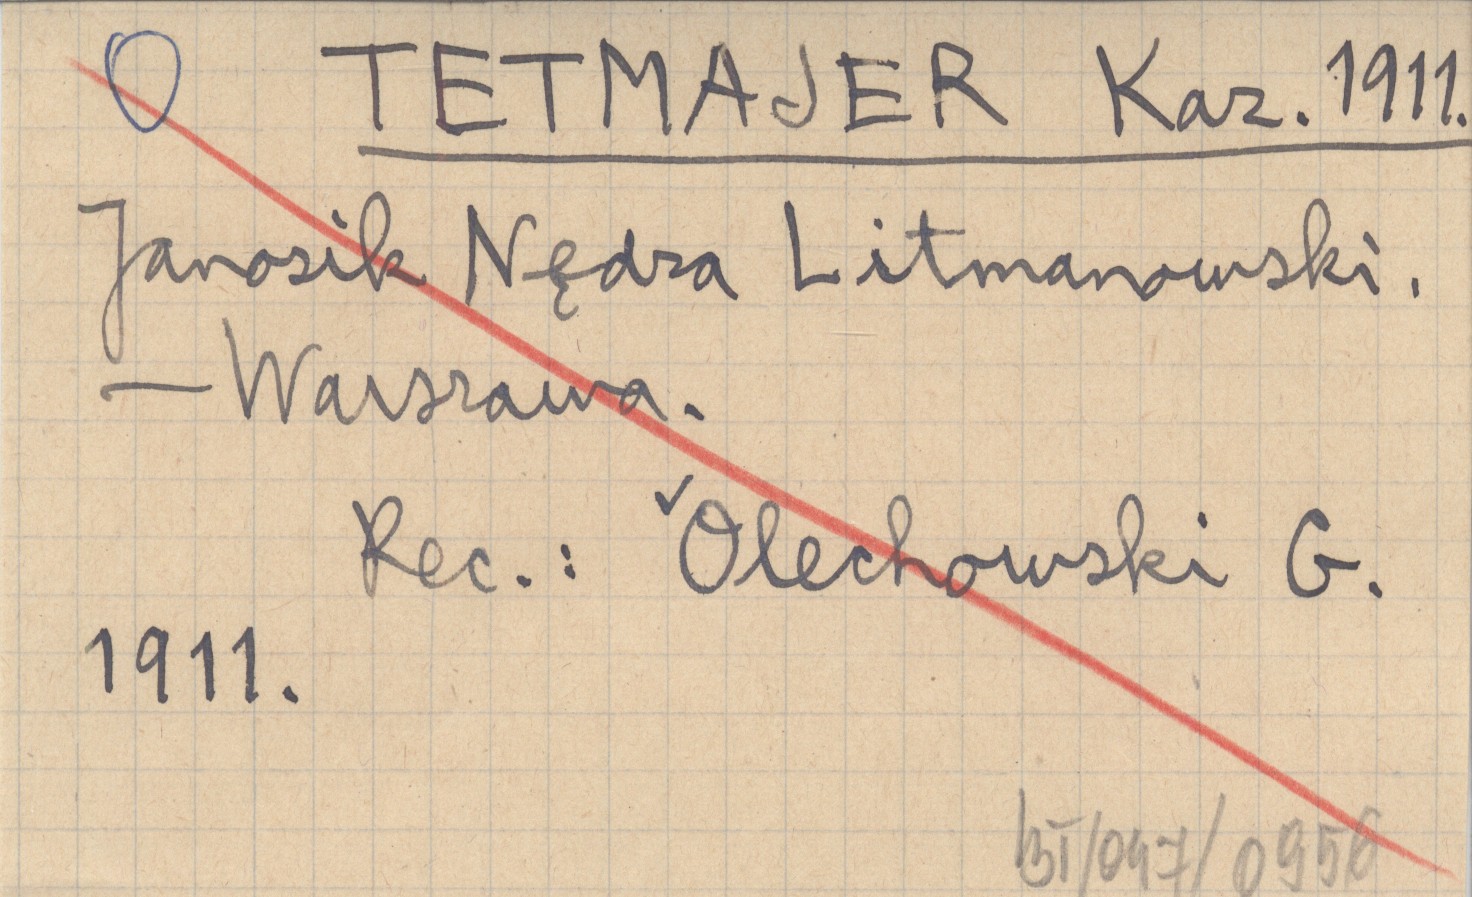 O TETMAJER Kaz. 1911.
Janosik Nędza Litmanowski.
— Warszawa.
Rec.: ✓Olechowski G.
1911.
BI/047/0956